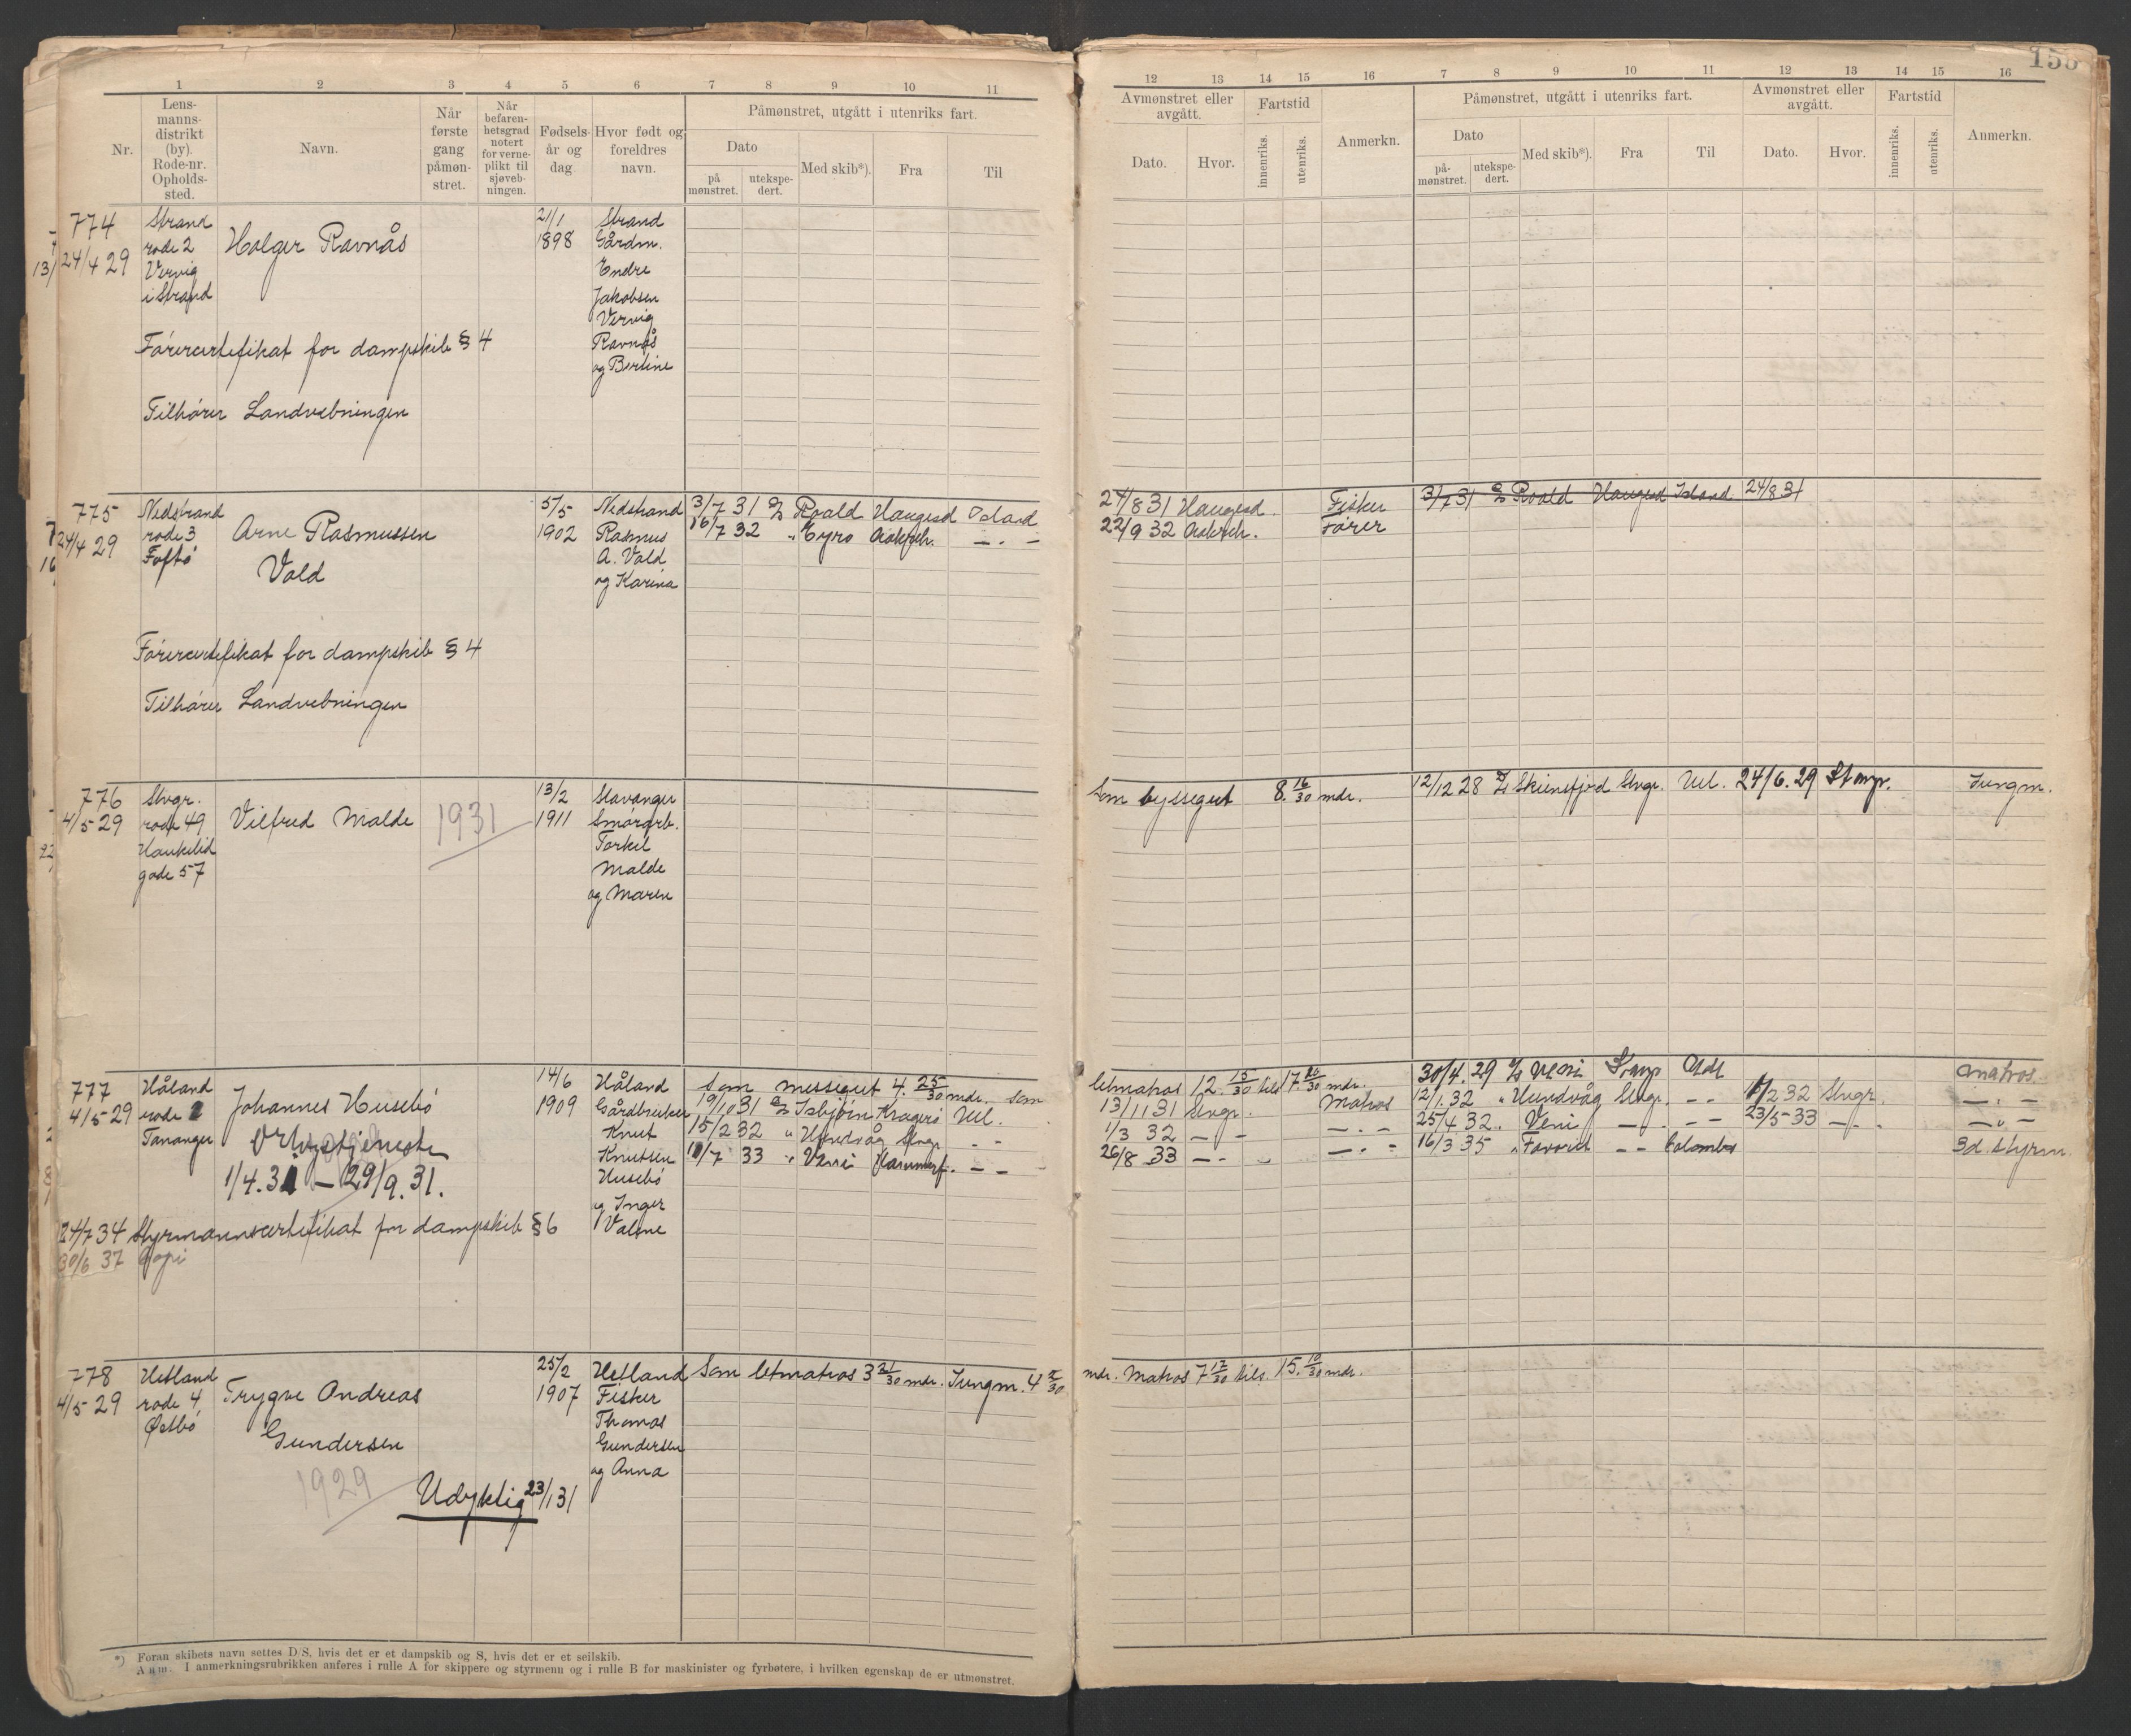 155
1 2 3 4 5 6 7 8 9 10 11
Nr.
Lens-
manns-
distrikt
(by).
Rode-nr.
Opholds-
sted.
Navn.
Når
første
gang
påmøn-
stret.
Når
befaren-
hetsgrad
notert
for verne-
plikt til
sjøveb-
ningen.
Fødsels-
år og
dag
Hvor født og
foreldres
navn.
Påmønstret, utgått i utenriks fart.
Dato
på
mønstret.
utekspe-
dert.
Med skib*).
Fra
Til
12 13 14 15 16 7 8 9 10 11 12 13 14 15 16
Avmønstret eller
avgått.
Dato.
Hvor.
Fartstid
innenriks.
utenriks.
Anmerkn.
Påmønstret, utgått i utenriks fart.
Dato
på-
mønstret.
utekspe-
dert.
Med skib*).
Fra
Til
Avmønstret eller
avgått.
Dato.
Hvor.
Fartstid
innenriks.
utenriks.
Anmerkn.
774
24/4 29
Strand
rode 2
Vervig
i Strand
Holger Ravnås
21/1
1898
Strand
Gårdm.
Endre
Jakobsen
Vervig
Ravnås
og Bertine
Førercertifikat for dampskib § 4
Tilhører Landvebningen
775
24/4 29
Nedstrand
rode 3
Toftø
Arne Rasmussen
Vald
5/5
1902
Nedstrand
Rasmus
A. Vald
og Karina
3/7 31 Roald Haugesd Island
16/7 32 " Gyro -.-
27/8 31 Haugesd. Fisker
22/9 32 Fører
3/7 31 Roald Haugesd Island 24/8 31
Førercertifikat for dampskib § 4
Tilhører Landvebningen
776
4/5 29
Stvgr.
rode 49
Haukelid
gade 57
Vilfred Malde
1931
13/2
1911
Stavanger
Smørarb.
Torkel
Malde
og Maren
Som byssegut 8. 16/30 mdr.
12/12 28 Skiensfjord Stvgr. Utl. 24/6.29 Jungm.
777
4/5 29
Håland
rode 2
Tananger
Johannes Husebø
1/4.31 - 29/9.31.
14/6
1909
Håland
Gårdbruker
Knut
Knutsen
Husebø
og Inger
Valine
Som messegut 4. 25/30 mdr. som
19/10 31 Isbjørn Kragerø Utl.
15/2 32 " Hundvåg Stvgr. - -
10/7 33 " Veni Hammerf. - -
letmatros 12. 15/30 tils. 17. mdr.
13/11 31 Stvgr. Matros
1/3 32 - - -.-
26/8 33 - - -.-
30/4. 29 Veni Matros
12/1.32 " Hundvåg Stvgr. - - 11/2 32 Stvgr. -.-
25/4 32. " Veni - . - - 23/5-33 - . -.-
16/3 35 " Favorit - - Colombo 3d. styrm.
24/7 34 Styrmannscertifikat for dampskib § 6
30/6 37 Copi
778
4/5 29
Hetland
rode 4
Østbø
Trygve Andreas
Gundersen
1929
Udyktig 23/1 31
25/2
1907
Hetland
Fisker
Thomas
Gundersen
og Anna
Som letmatros 3 21/30 mdr. Jungm. 4 mdr. Matros 7 12/30 tils. 15. 10/30 mdr.
*) Foran skibets navn settes D/S, hvis det er et dampskib og S, hvis det er et seilskib.
Anm. I anmerkningsrubrikken anføres i rulle A for skippere og styrmenn og i rulle B for maskinister og fyrbøtere, i hvilken egenskap de er utmønstret.